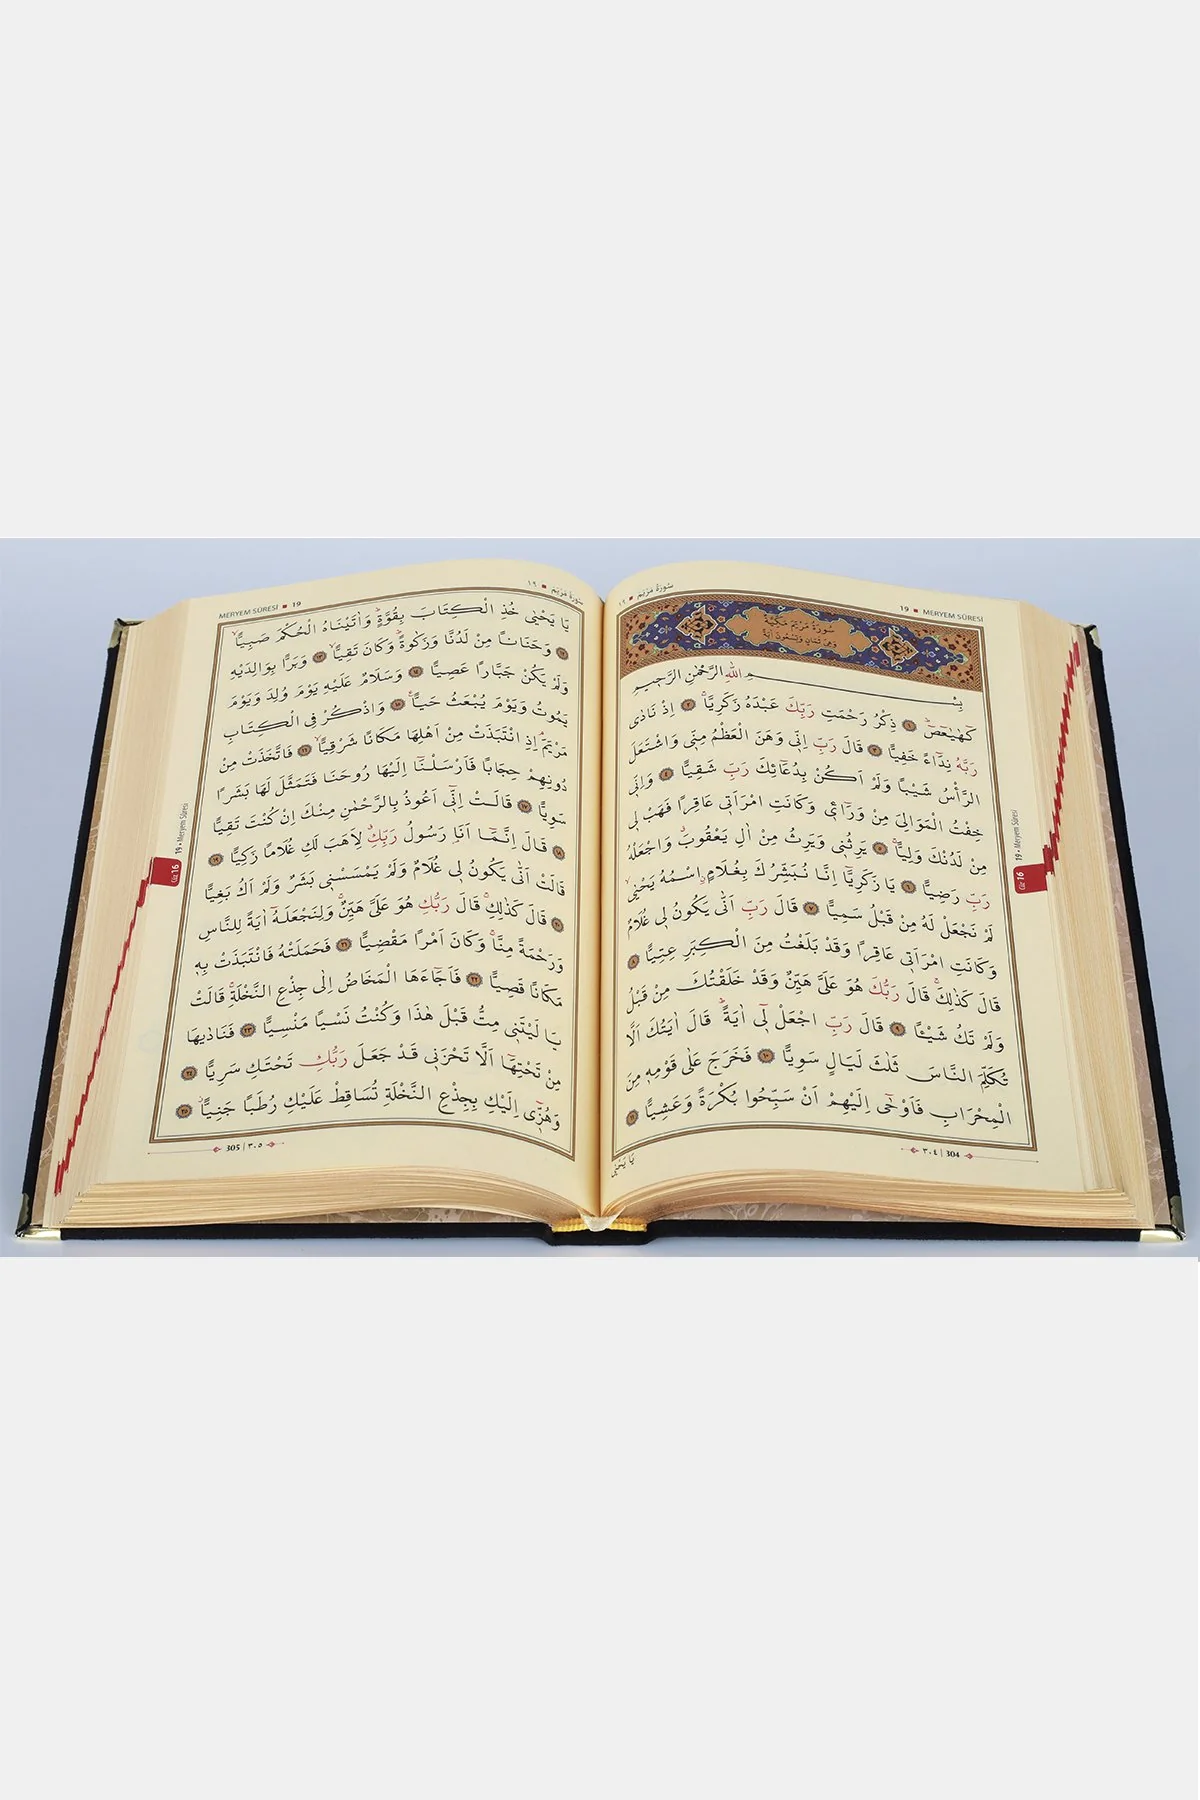 19 ▪ MERYEM SÛRESİ
سُورَةُ مَرْيَمَ ▪ ١٩
سُورَةُ مَرْيَمَ مَكِّيَّةٌ
وَهِيَ ثَمَانٍ وَتِسْعُونَ اٰيَةً
بِسْمِ اللّٰهِ الرَّحْمٰنِ الرَّحٖيمِ
كٓهٰيٰعٓصٓ ﴿١﴾ ذِكْرُ رَحْمَتِ رَبِّكَ عَبْدَهُ زَكَرِيَّا ﴿٢﴾ اِذْ نَادٰى
رَبَّهُ نِدَٓاءً خَفِيًّا ﴿٣﴾ قَالَ رَبِّ اِنّٖى وَهَنَ الْعَظْمُ مِنّٖى وَاشْتَعَلَ
الرَّأْسُ شَيْبًا وَلَمْ اَكُنْ بِدُعَٓائِكَ رَبِّ شَقِيًّا ﴿٤﴾ وَاِنّٖى
خِفْتُ الْمَوَالِىَ مِنْ وَرَٓاءٖى وَكَانَتِ امْرَاَتٖى عَاقِرًا فَهَبْ لٖى
مِنْ لَدُنْكَ وَلِيًّا ﴿٥﴾ يَرِثُنٖى وَيَرِثُ مِنْ اٰلِ يَعْقُوبَ وَاجْعَلْهُ
رَبِّ رَضِيًّا ﴿٦﴾ يَا زَكَرِيَّٓا اِنَّا نُبَشِّرُكَ بِغُلَامٍ اسْمُهُ يَحْيٰى
لَمْ نَجْعَلْ لَهُ مِنْ قَبْلُ سَمِيًّا ﴿٧﴾ قَالَ رَبِّ اَنّٰى يَكُونُ لٖى غُلَامٌ
وَكَانَتِ امْرَاَتٖى عَاقِرًا وَقَدْ بَلَغْتُ مِنَ الْكِبَرِ عِتِيًّا ﴿٨﴾
قَالَ كَذٰلِكَ قَالَ رَبُّكَ هُوَ عَلَىَّ هَيِّنٌ وَقَدْ خَلَقْتُكَ مِنْ قَبْلُ
وَلَمْ تَكُ شَيْئًا ﴿٩﴾ قَالَ رَبِّ اجْعَلْ لٖٓى اٰيَةً قَالَ اٰيَتُكَ اَلَّا
تُكَلِّمَ النَّاسَ ثَلٰثَ لَيَالٍ سَوِيًّا ﴿١٠﴾ فَخَرَجَ عَلٰى قَوْمِهٖ مِنَ
الْمِحْرَابِ فَاَوْحٰٓى اِلَيْهِمْ اَنْ سَبِّحُوا بُكْرَةً وَعَشِيًّا ﴿١١﴾
٣٠٤ | 304
يَا يَحْيٰى
Cüz 16
19 • Meryem Sûresi
MERYEM SÛRESİ ▪ 19
سُورَةُ مَرْيَمَ ▪ ١٩
يَا يَحْيٰى خُذِ الْكِتَابَ بِقُوَّةٍ وَاٰتَيْنَاهُ الْحُكْمَ صَبِيًّا
﴿١٢﴾ وَحَنَانًا مِنْ لَدُنَّا وَزَكٰوةً وَكَانَ تَقِيًّا ﴿١٣﴾ وَبَرًّا بِوَالِدَيْهِ
وَلَمْ يَكُنْ جَبَّارًا عَصِيًّا ﴿١٤﴾ وَسَلَامٌ عَلَيْهِ يَوْمَ وُلِدَ وَيَوْمَ
يَمُوتُ وَيَوْمَ يُبْعَثُ حَيًّا ﴿١٥﴾ وَاذْكُرْ فِى الْكِتَابِ
مَرْيَمَ اِذِ انْتَبَذَتْ مِنْ اَهْلِهَا مَكَانًا شَرْقِيًّا ﴿١٦﴾ فَاتَّخَذَتْ مِنْ
دُونِهِمْ حِجَابًا فَاَرْسَلْنَٓا اِلَيْهَا رُوحَنَا فَتَمَثَّلَ لَهَا بَشَرًا
سَوِيًّا ﴿١٧﴾ قَالَتْ اِنّٖٓى اَعُوذُ بِالرَّحْمٰنِ مِنْكَ اِنْ كُنْتَ تَقِيًّا
﴿١٨﴾ قَالَ اِنَّمَٓا اَنَا۬ رَسُولُ رَبِّكِ لِاَهَبَ لَكِ غُلَامًا زَكِيًّا ﴿١٩﴾
قَالَتْ اَنّٰى يَكُونُ لٖى غُلَامٌ وَلَمْ يَمْسَسْنٖى بَشَرٌ وَلَمْ اَكُ بَغِيًّا
﴿٢٠﴾ قَالَ كَذٰلِكِ قَالَ رَبُّكِ هُوَ عَلَىَّ هَيِّنٌ وَلِنَجْعَلَهُٓ اٰيَةً لِلنَّاسِ
وَرَحْمَةً مِنَّا وَكَانَ اَمْرًا مَقْضِيًّا ﴿٢١﴾ فَحَمَلَتْهُ فَانْتَبَذَتْ بِهٖ
مَكَانًا قَصِيًّا ﴿٢٢﴾ فَاَجَٓاءَهَا الْمَخَاضُ اِلٰى جِذْعِ النَّخْلَةِ قَالَتْ
يَا لَيْتَنٖى مِتُّ قَبْلَ هٰذَا وَكُنْتُ نَسْيًا مَنْسِيًّا ﴿٢٣﴾ فَنَادٰيهَا
مِنْ تَحْتِهَٓا اَلَّا تَحْزَنٖى قَدْ جَعَلَ رَبُّكِ تَحْتَكِ سَرِيًّا ﴿٢٤﴾
وَهُزّٖٓى اِلَيْكِ بِجِذْعِ النَّخْلَةِ تُسَاقِطْ عَلَيْكِ رُطَبًا جَنِيًّا ﴿٢٥﴾
305 | ٣٠٥
Cüz 16
19 • Meryem Sûresi